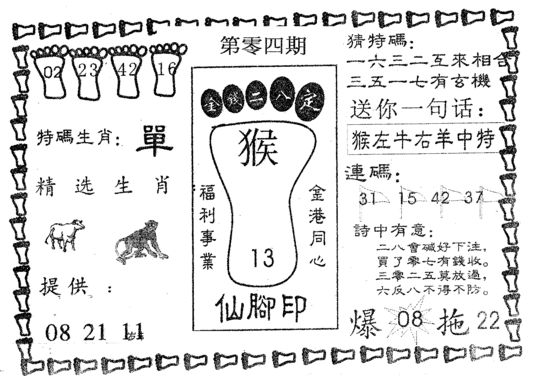 02 23 42 16
特碼生肖：單
精选生肖
提供：
08 21 11
第零四期
金錢二八定
猴
13
福利事業
金港同心
仙腳印
猜特碼：
一六三二互來相合
三五一七有玄機
送你一句话：
猴左牛右羊中特
連碼：
31 15 42 37
詩中有意：
二八會碱好下注，
買了零七有錢收。
三零二五莫放過，
六反八不得不防。
爆 08 拖 22